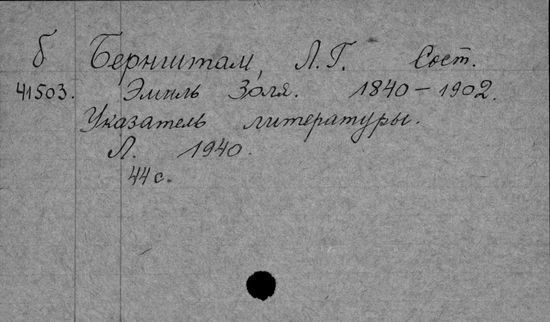 б Бернштам, Л.Г. Сост.
41503. Эмиль Золя. 1840-1902.
Указатель литературы.
Л. 1940.
44 с.